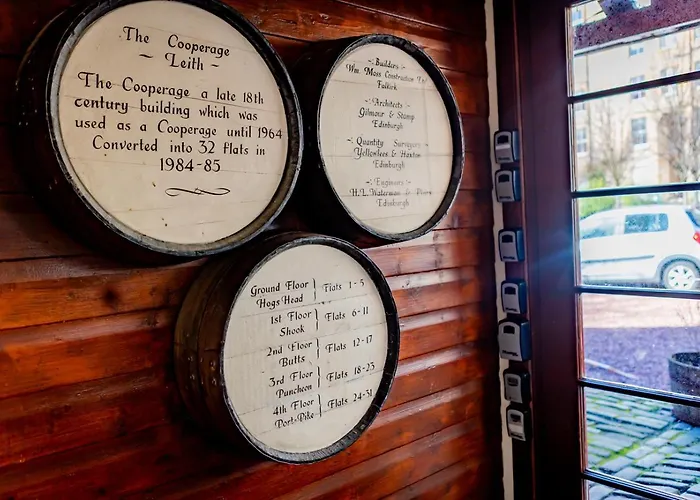 The Cooperage
~ Leith ~
The Cooperage a late 18th
century building which was
used as a Cooperage until 1964
Converted into 32 flats in
1984-85
Builders
Wm. Moss Construction Ltd
Falkirk
Architects
Gilmour & Stamp
Edinburgh
Quantity Surveyors
Yellowlees & Hoxton
Edinburgh
Engineers
H.L. Waterman &
Edinburgh
Ground Floor
Hogs Head
Flats 1-5
1st Floor
Shook
Flats 6-11
2nd Floor
Butts
Flats 12-17
3rd Floor
Puncheon
Flats 18-23
4th Floor
Port-Pike
Flats 24-31